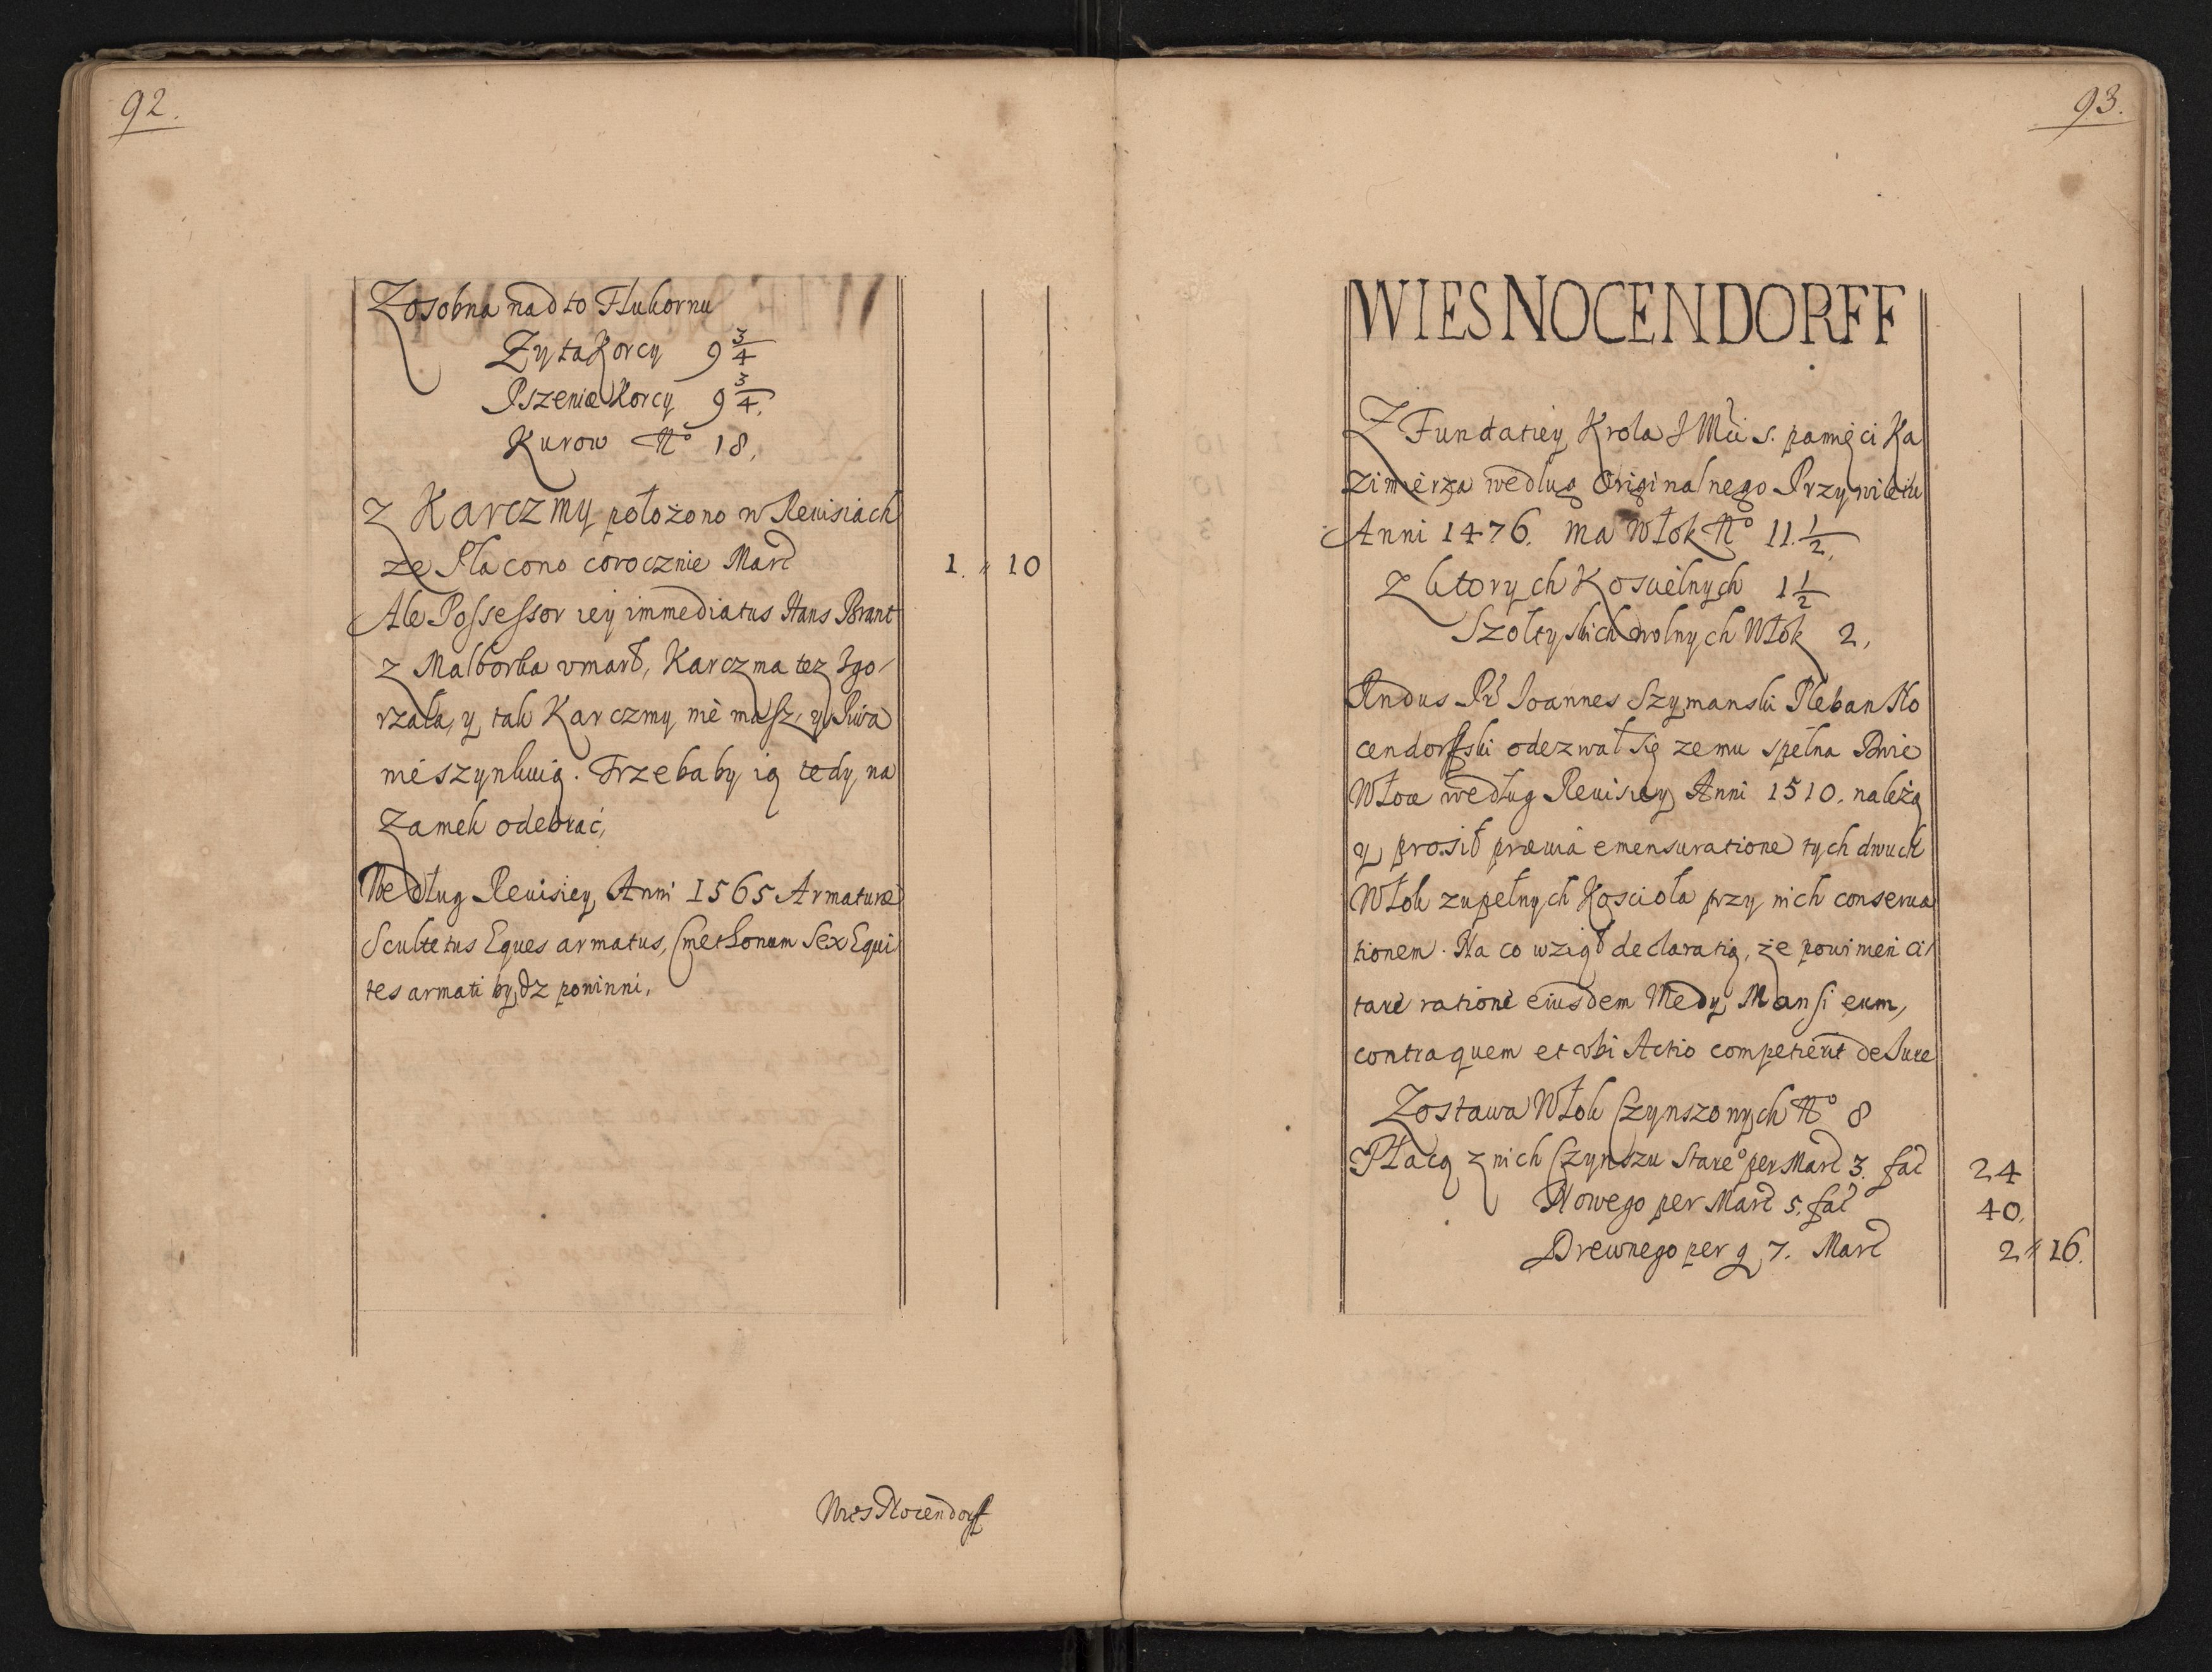 92.
Zosobna nadto Flukornu
Zyta Korcy 9 3/4
Pszenice Korcy 9 3/4.
Kurow No 18.
Z Karczmy położono w Reuisiach
ze Płacono corocznie Marc 1. 10
Ale Possessor iey immediatus Hans Brant
z Malborka vmarł, Karczma tez zgo/
rzała, y tak Karczmy nie masz, y Piwa
nieszynkuią. Trzebaby ią tedy na
Zamek odebrać,
Według Reuisiey Anni 1565 Armaturæ
Scultetus Eques armatus, Cmethonum Sex Equi
tes armati bydz powinni,
Wies Nocendorff
93.
WIES NOCENDORFF
Z Fundatiey Krola J Mci s. pamięci Ka
zimierza wedlug Originalnego Przywileiu
Anni 1476. ma Włok No 11. 1/2.
Z ktorych Koscielnych 1 1/2
Szołtyskich wolnych Włok 2,
Rndus Pr Joannes Szymanski Pleban No
cendorfski odezwał się ze mu spełna Dwie
Włoce według Reuisiey Anni 1510. należą
y prosił præuia emensuratione tych dwuch
Włok zupełnych Kosciola przy nich conserua
tionem. Na co wziął declaratią, że powinien ci/
tare ratione eiusdem Medy Mansi eum,
contra quem et vbi Actio competierit de Jure
Zostawa Włok Czynszonych No 8
Płacą z nich Czynszu Stareo per Marc 3. fac 24
Nowego per Marc 5. fac 40.
Drewnego per g 7. Marc 2 16.